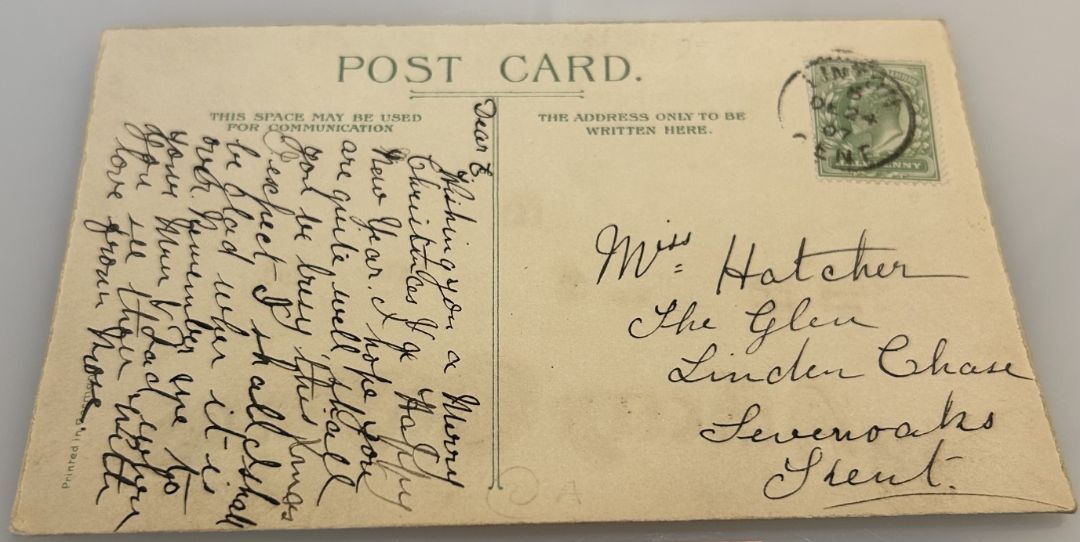 POST CARD.
THIS SPACE MAY BE USED
FOR COMMUNICATION
THE ADDRESS ONLY TO BE
WRITTEN HERE.
Dear E
Wishing you a Merry
Christmas & a Happy
New Year. I hope you
are quite well. shall
you be busy this Xmas
I expect I shall & shall
be glad when it is
over. Remember me to
your Mum & Dad when
you see them with
love from
Miss Hatcher
The Glen
Linden Chase
Sevenoaks
Kent.
Printed in
PENNY